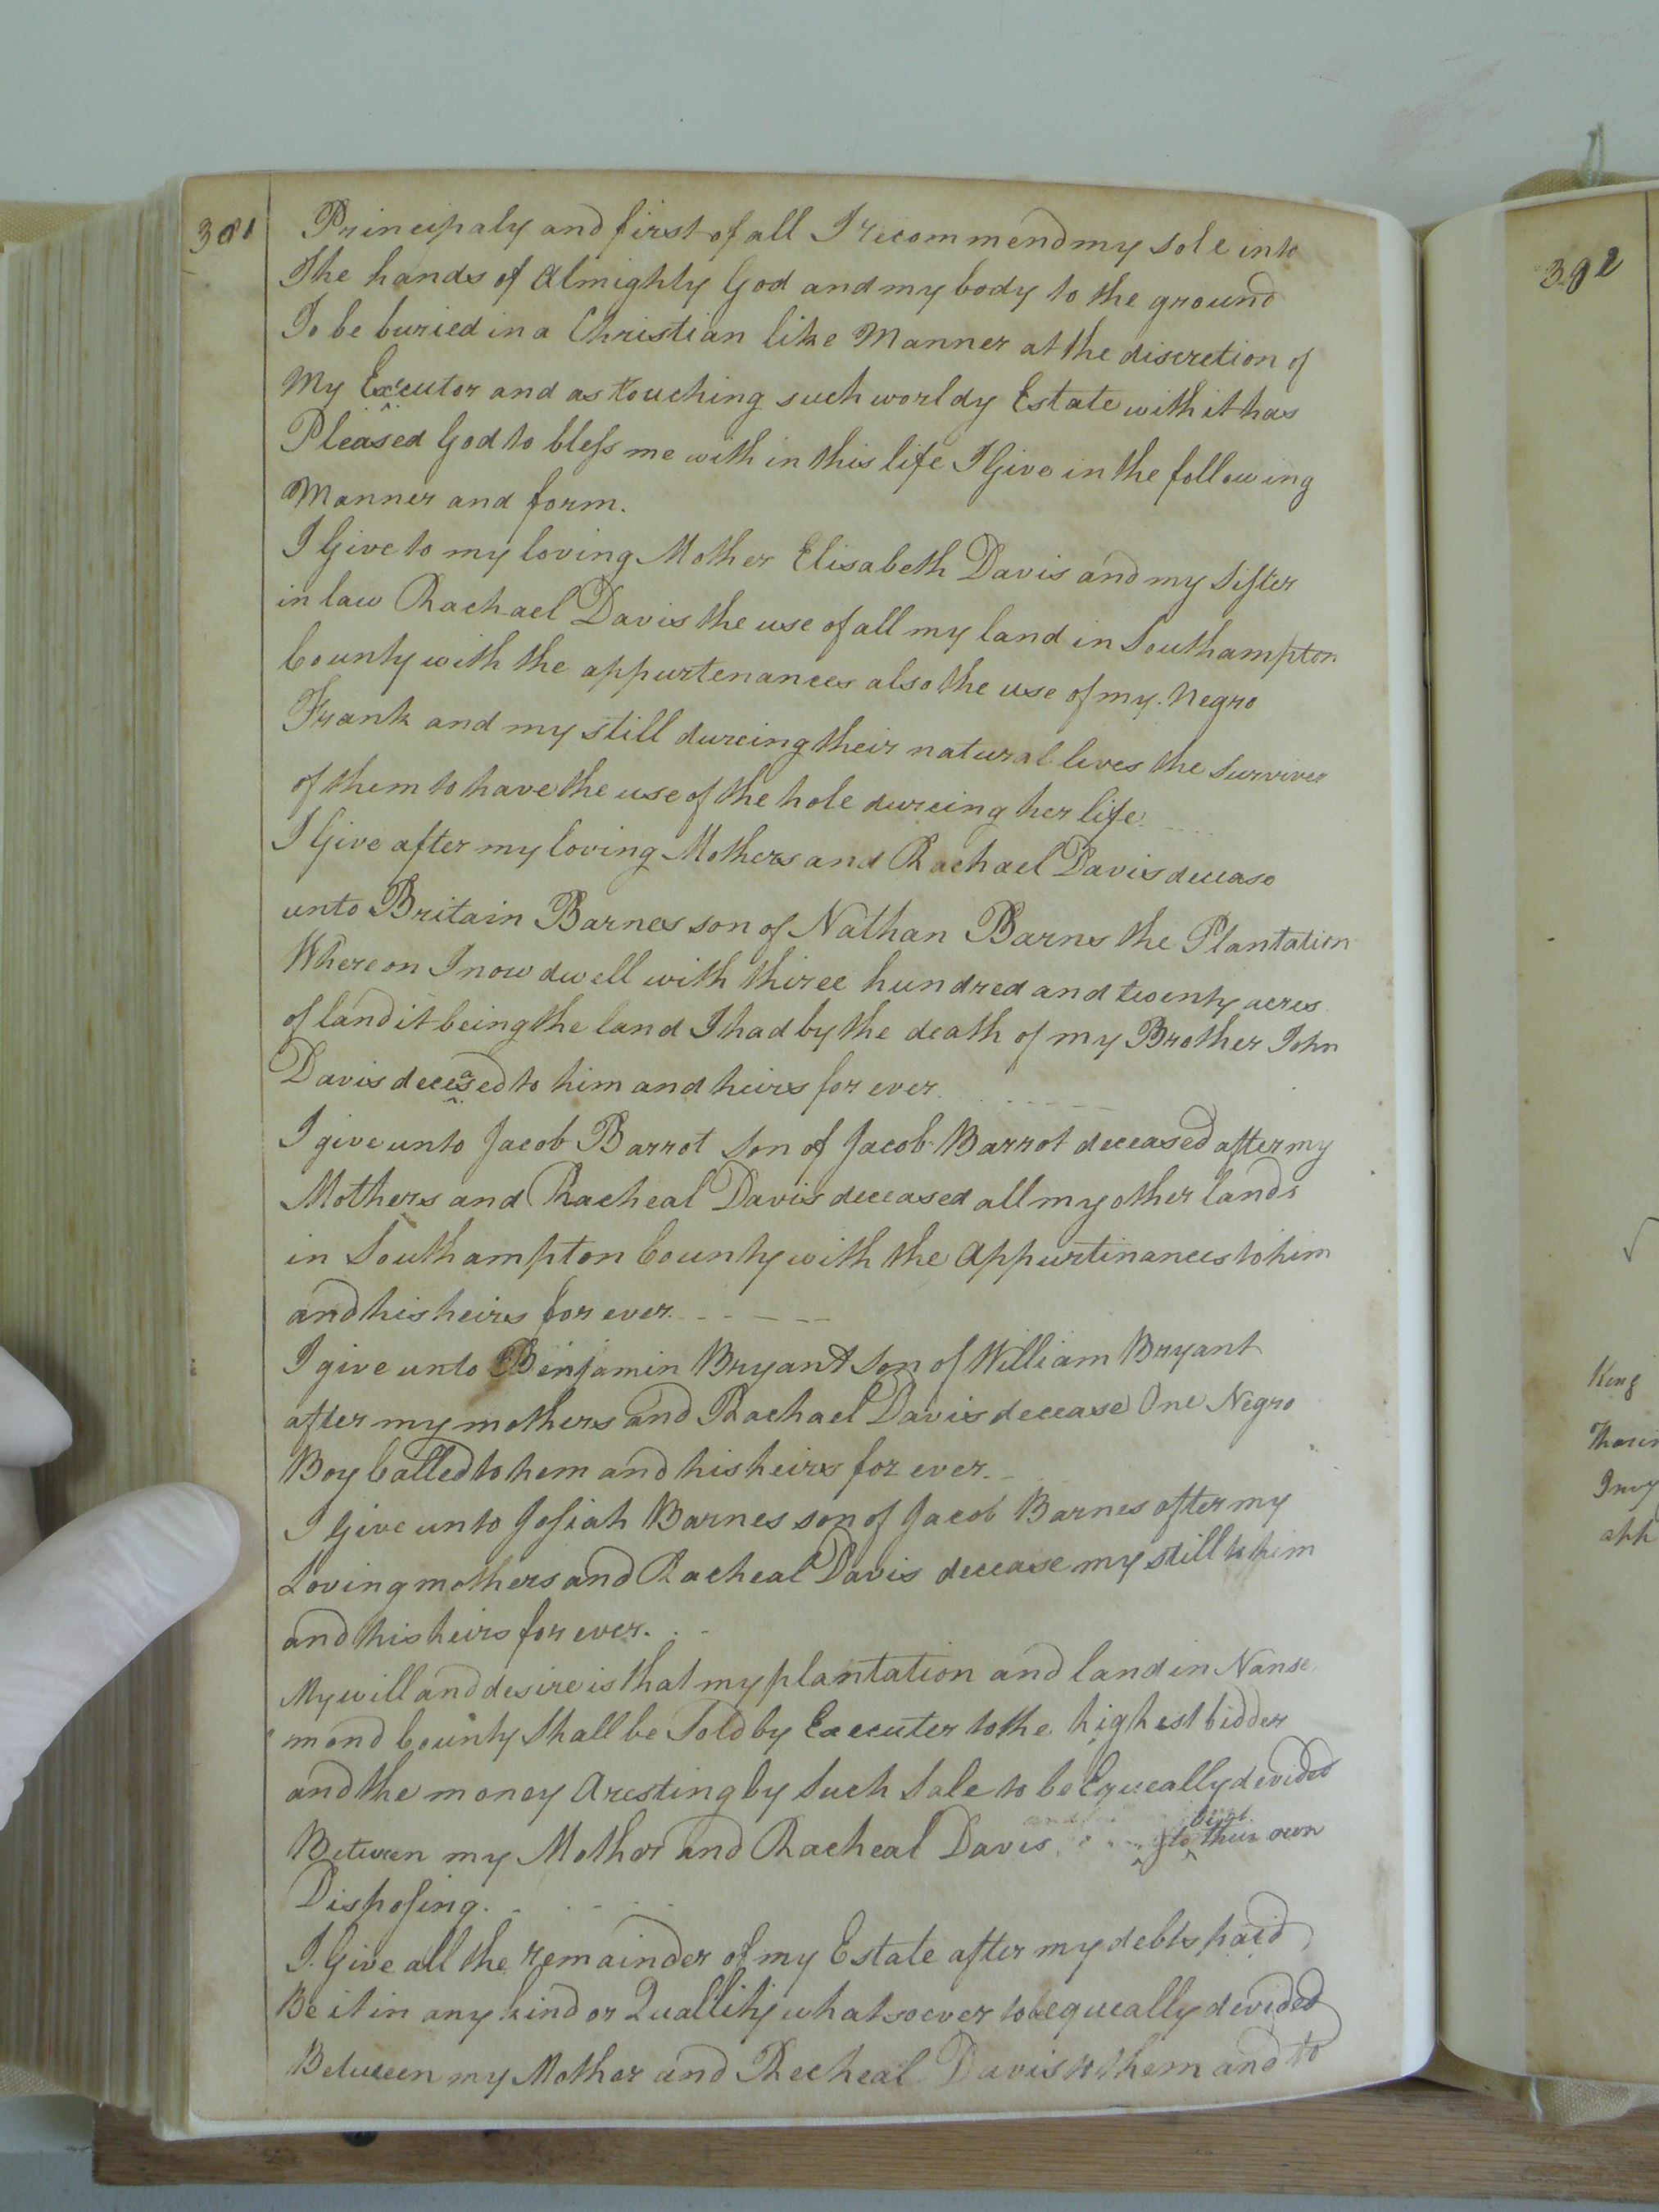 381
Principaly and first of all I recommend my sole into
The hands of Almighty God and my body to the ground
To be buried in a Christian like Manner at the discretion of
My Executor and as touching such worldy Estate with it has
Pleased God to bless me with in this life I Give in the following
Manner and form.
I Give to my loving Mother Elisabeth Davis and my Sister
in law Rachael Davis the use of all my land in Southampton
County with the appurtenances also the use of my Negro
Frank and my still dureing their natural lives the Surviver
of them to have the use of the hole dureing her life
I Give after my loving Mothers and Rachael Davis decease
unto Britain Barnes son of Nathan Barns the Plantation
Whereon I now dwell with three hundred and twenty acres
of land it being the land I had by the death of my Brother John
Davis deceased to him and heirs for ever
I give unto Jacob Barrot Son of Jacob Barrot deceased after my
Mothers and Racheal Davis deceased all my other lands
in Southampton County with the Appurtinances to him
and his heirs for ever
I give unto Binjamin Bryant Son of William Bryant
after my mothers and Rachael Davis decease One Negro
Boy Called to hem and his heirs for ever.
I Give unto Josiah Barnes son of Jacob Barnes after my
Loving mothers and Racheal Davis decease my still to him
and his heirs for ever.
My will and desire is that my plantation and land in Nanse
mond County Shall be Sold by Executer to the highest bidder
and the money Aresting by Such Sale to be Equeally devided
Between my Mother and Racheal Davis to their own
Disposing.
I Give all the remainder of my Estate after my debts paid
Be it in any kind or Quallity whatsoever to be equeally devided
Between my Mother and Recheal Davis to them and to
392
King